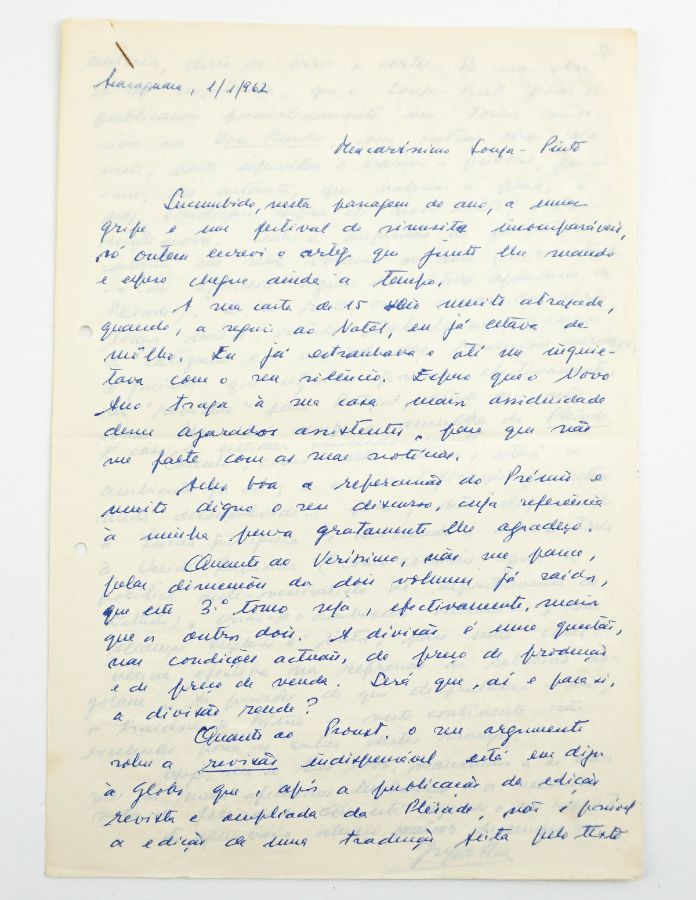 Araraquara, 1/1/962
Meu caríssimo Souza-Pinto
Sucumbido, nesta passagem do ano, a uma
gripe e um festival de sinusite incomparáveis,
só ontem escrevi o artigo que junto lhe mando
e espero chegue ainda a tempo.
A sua carta de 15 veio muito atrasada,
quando, a seguir ao Natal, eu já estava de
môlho. Eu já estranhava e até me inquie-
tava com o seu silêncio. Espero que o Novo
Ano traga à sua casa mais assiduidade
desses azarados assistentes, para que não
me falte com as suas notícias.
Acho boa a repercussão do Prémio e
muito digno o seu discurso, cuja referência
à minha pessoa gratamente lhe agradeço.
Quanto ao Veríssimo, não me parece,
pelas dimensões dos dois volumes já saídos,
que este 3.º tomo seja, efectivamente, maior
que os outros dois. A divisão é uma questão,
nas condições actuais, do preço de produção
e de preço de venda. Será que, aí e para si,
a divisão rende?
Quanto ao Proust, o seu argumento
sobre a revisão indispensável está em dizer
à Globo que, após a publicação da edição
revista e ampliada da Pléiade, não é possível
a edição de uma tradução feita pelo texto